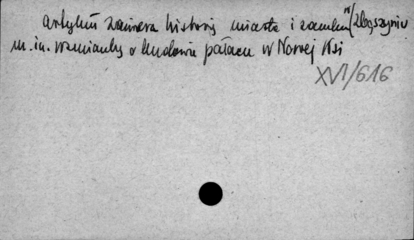 artykuł zawiera historię miasta i zamku w Zbąszyniu
m.in. wzmianka o budowie pałacu w Nowej Wsi
XVI/616